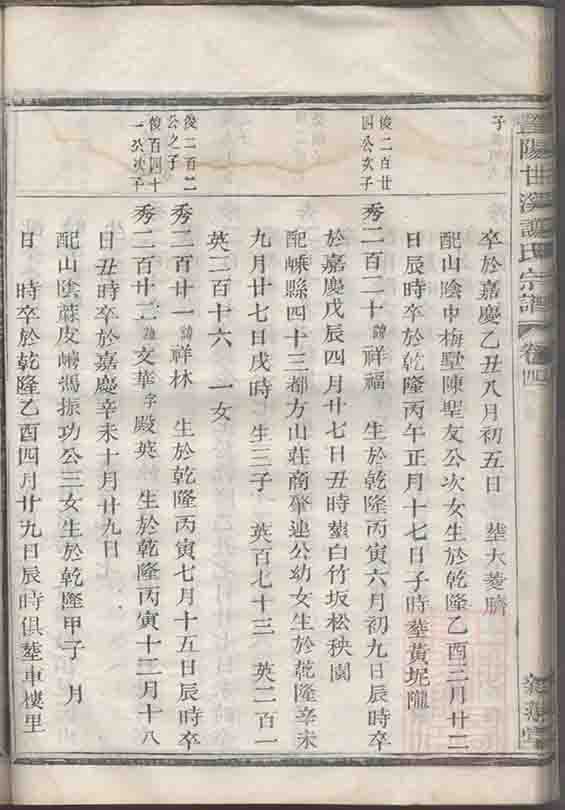 暨陽甘溪 氏宗譜 卷四
子
卒於嘉慶乙丑八月初五日 塟大菱臍
配山陰中梅墅陳聖友公次女生於乾隆乙酉三月廿二
日辰時卒於乾隆丙午正月十七日子時塟黃坭隴
俊二百廿
四公次子
秀二百二十諱祥福 生於乾隆丙寅六月初九日辰時卒
於嘉慶戊辰四月廿七日丑時塟白竹坂松秧園
配嵊縣四十三都方山莊商 連公幼女生於乾隆辛未
九月廿七日戌時 生三子 英百七十三 英二百一
英二百十六 一女
俊二百二
公之子
秀二百廿一諱祥林 生於乾隆丙寅七月十五日辰時卒
俊百四十
一公次子
秀二百廿二諱文華字殿英 生於乾隆丙寅十二月十八
日丑時卒於嘉慶辛未十月廿九日
配山陰 皮 馮振功公三女生於乾隆甲子 月
日 時卒於乾隆乙酉四月廿九日辰時俱塟車樓里